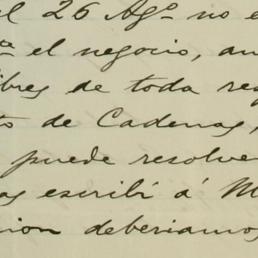 el 26 Ago no e
te el negocio, au
ibres de toda res
to de Cadenas,
puede resolve
as escribí á M
ion deberiamos